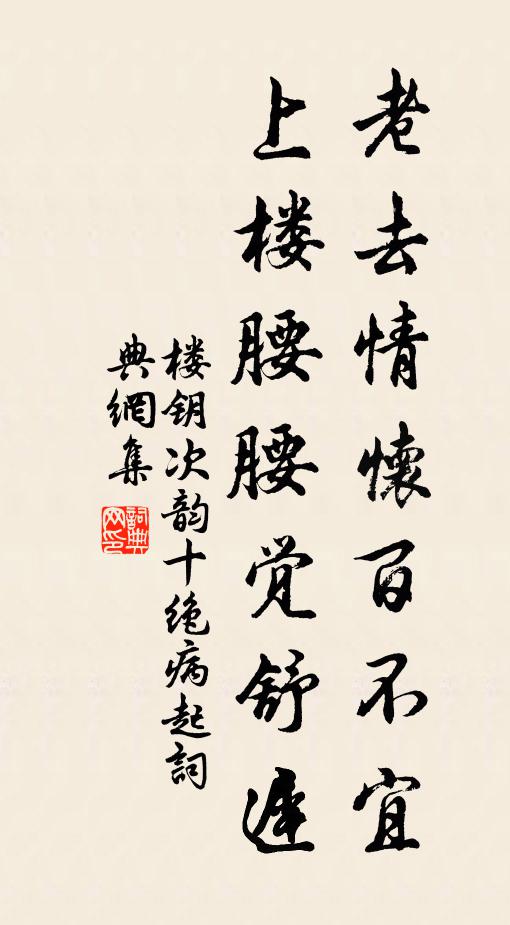 老去情懷百不宜
上楼腰腰觉舒遲
楼钥次韵十绝病起詞
典網集
詞典
网印